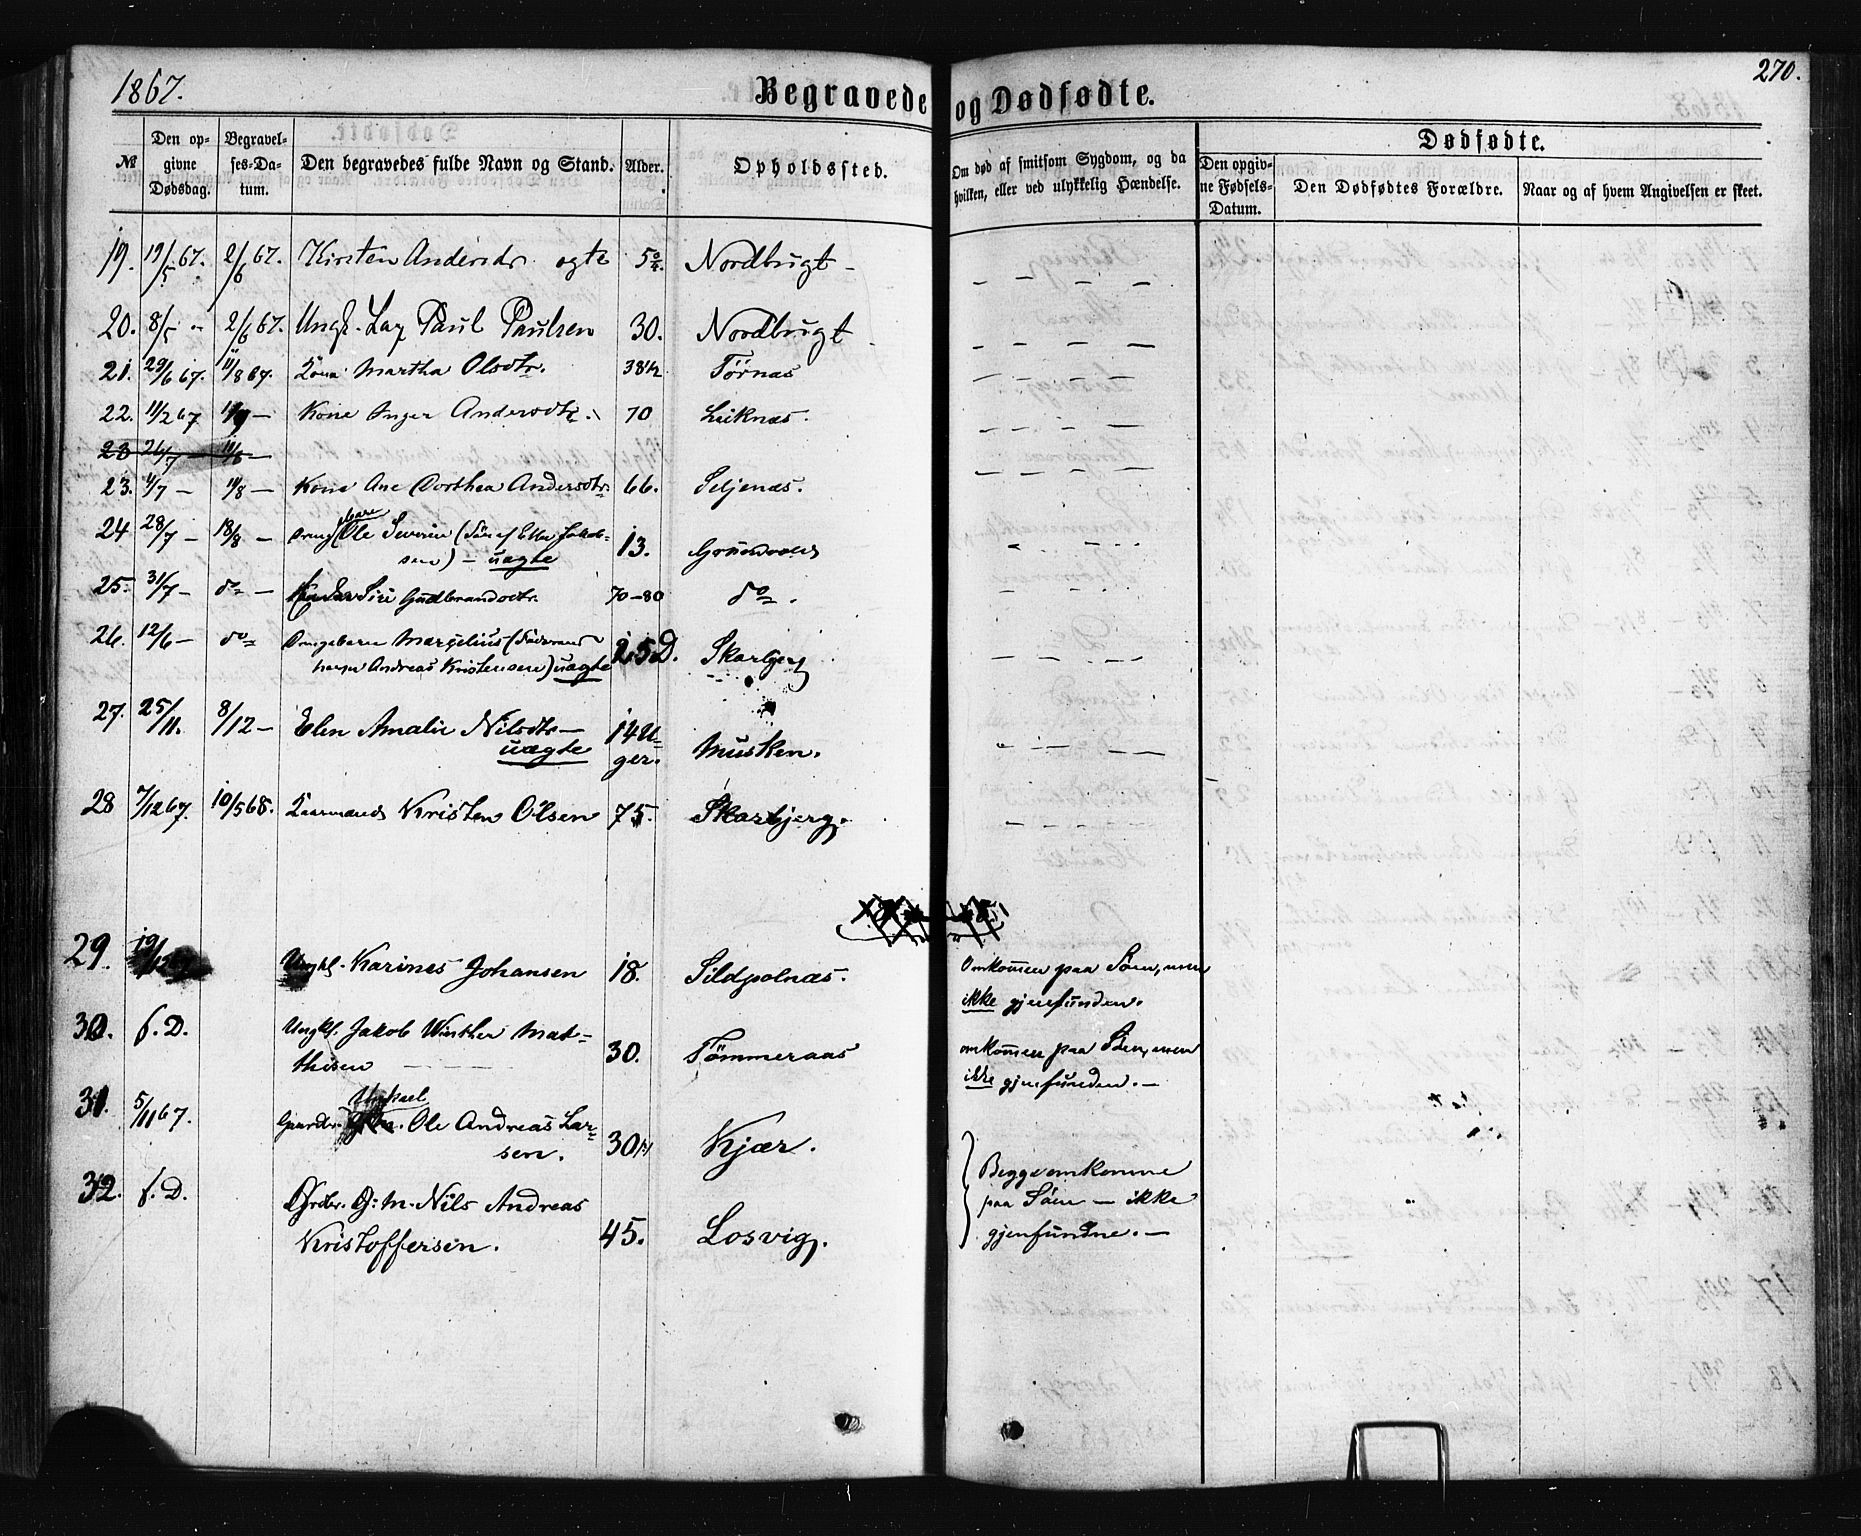 1867. Begravede og Dødfødte. 270.
Dødfødte.
№ Den opgivne Dødsdag. Begravelses-Datum. Den begravedes fulde Navn og Stand. Alder. Opholdssted. Om død af smitsom Sygdom, og da hvilken, eller ved ulykkelig Hændelse. Den opgivne Fødsels-Datum. Den Dødfødtes Forældre. Naar og af hvem Angivelsen er skeet.
19. 19/5 67. 2/6 67. Kirsten Andersdr. ogte Nordbugt – – – – –
20. 8/5 – 2/6 67. Ungk. Paul Paulsen 30. Nordbugt – – – –
21. 29/6 67. 11/8 67. Kone Martha Olsdtr. 38 Tørnæs – – – – –
22. 11/2 67 – Kone Inger Andersdtr. 70 Leiknæs. – – – –
23 26/7 – 11/8 –
23. 4/7 – 11/8 – Kone Ane Dorthea Andersdtr. 66. Seljenæs. – – – –
24 28/7 – 18/8 – Ole Severin (Søn af Jakob-
sen) – uægte 13.
25. 31/7 – do – Siri Gudbrandsdtr. 70–80 do.
26. 12/6 – do Drengebarn Margelius
Andreas Kristensen) uægte Skarbjerg
27. 25/11. 8/12 – Elen Amalie Nilsdtr –
uægte 14 U-
ger. Musken.
28 7/12 67. 10/5 68. Kaarmand Kristen Olsen 75. Skarbjerg.
29. 19/12 Ungkl. Karines Johansen 18. Sildpolnæs. Omkommen paa Søen, men
ikke gjenfunden.
30. f. D. Ungkl. Jakob Winther Mat-
thisen – – – – 30. Tømmeraas omkommen paa Søen, men
ikke gjenfunden. –
31. 5/11 67. Mikael
Gaardbr. Ole Andreas Lar-
sen. 30 Kjær.
32. f. D. Grdbr. G: m. Nils Andreas
Kristoffersen. 45. Losvig.
Begge omkomne
paa Søen – ikke
gjenfundne. –